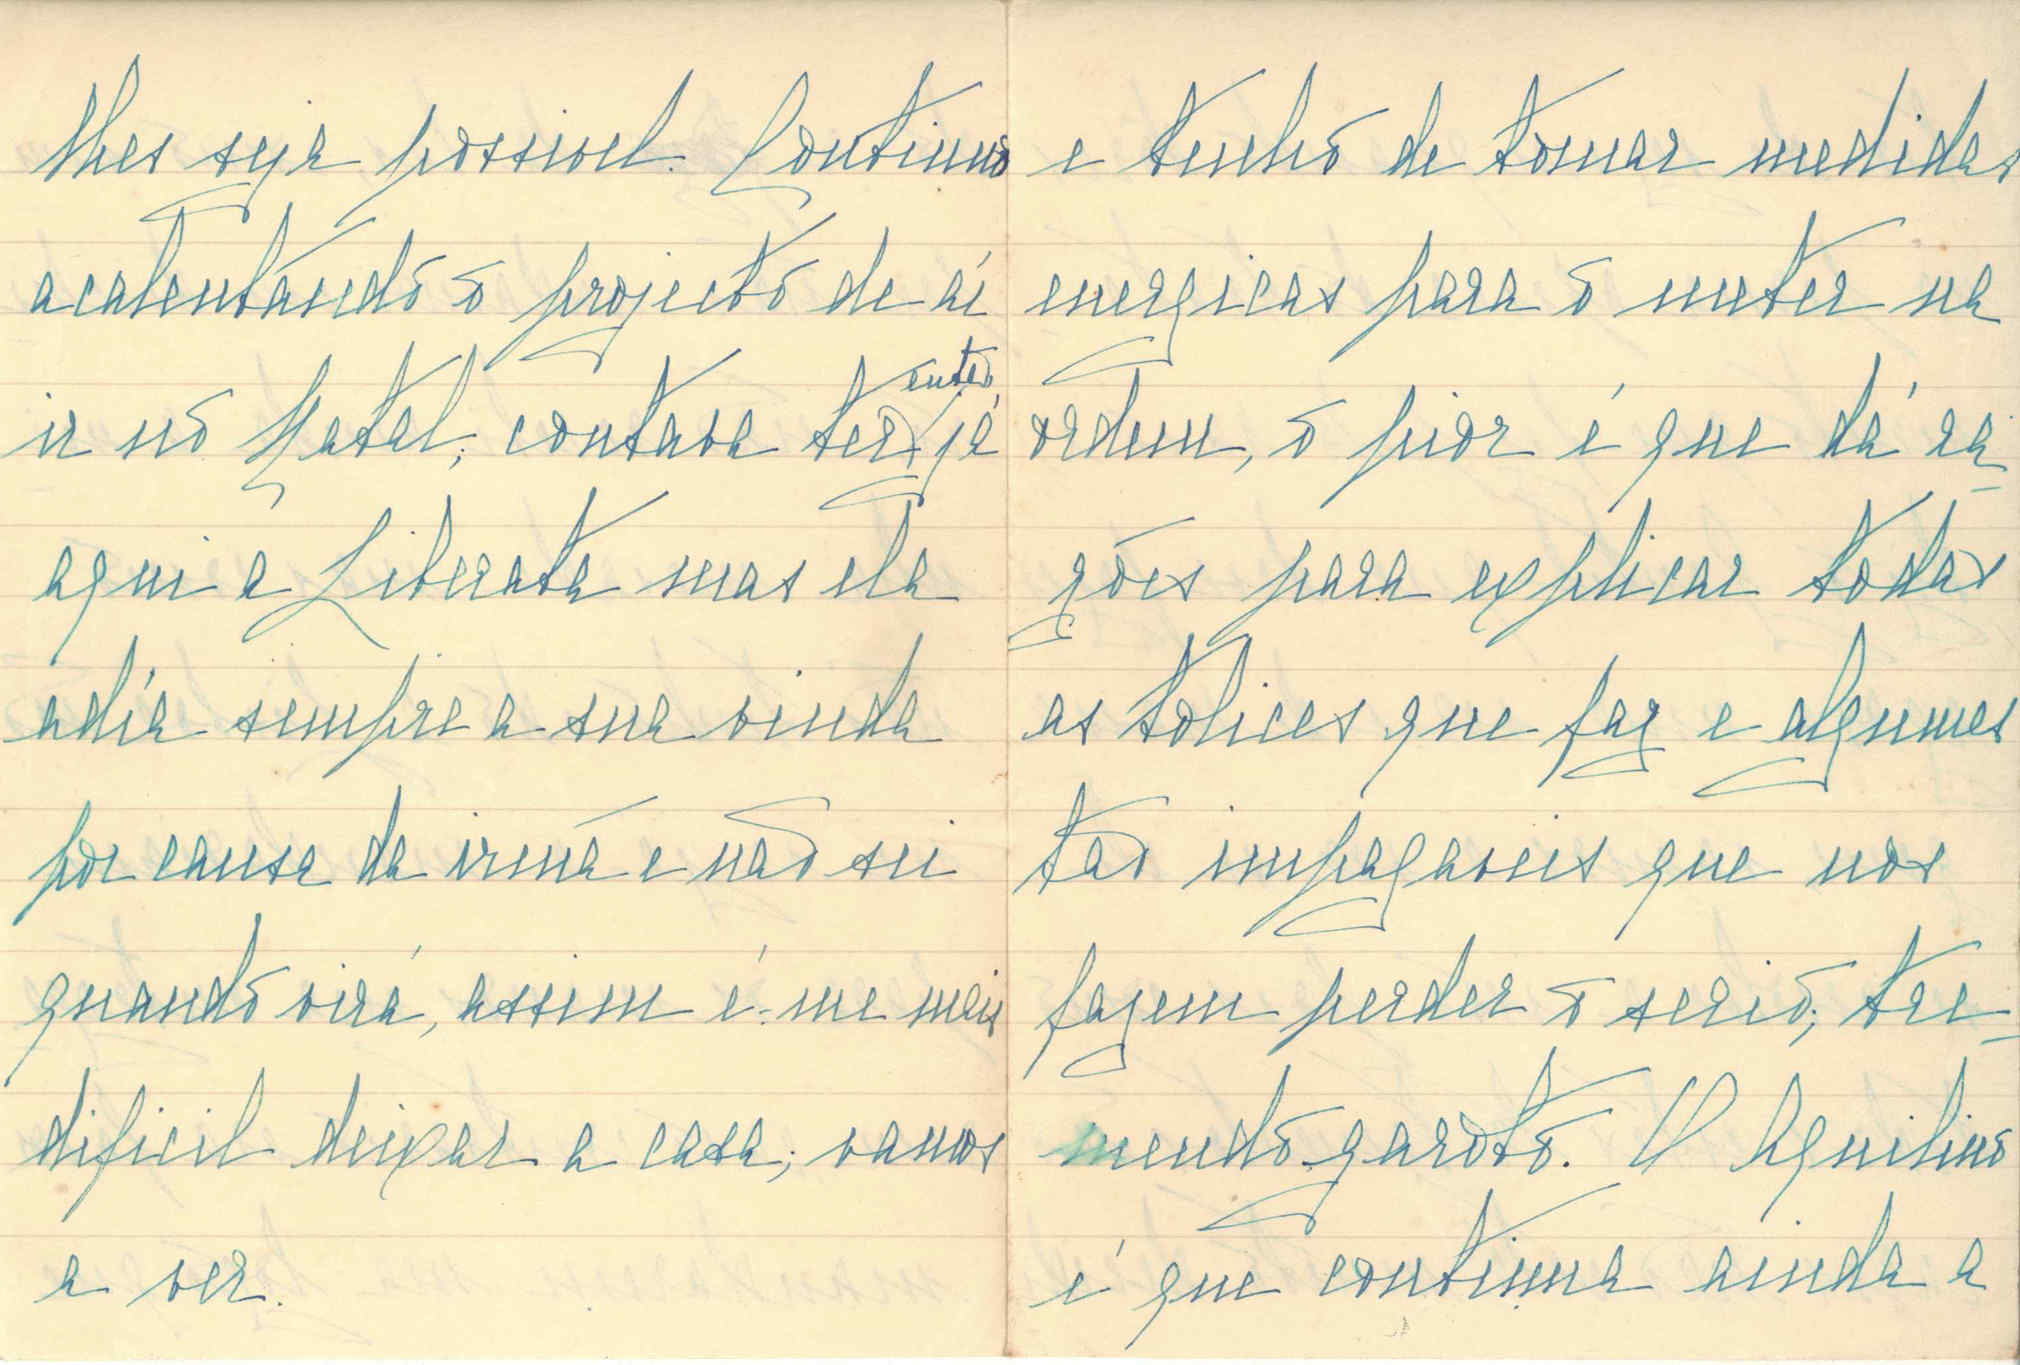 lhes seja possivel. Continuo
acalentando o projecto de aí
ir no Natal, contava ter então já
aqui a Liberata mas ela
adía sempre a sua vinda
por causa da irmã e não sei
quando virá, assim é-me mais
dificil deixar a casa; vamos
a ver.
e tenho de tomar medidas
energicas para o meter na
ordem, o pior é que dá ra-
zões para explicar todas
as tolices que faz e algumas
tão impagaveis que nos
fazem perder o serio; tre-
mendo garoto. O Aquilino
é que continua ainda a